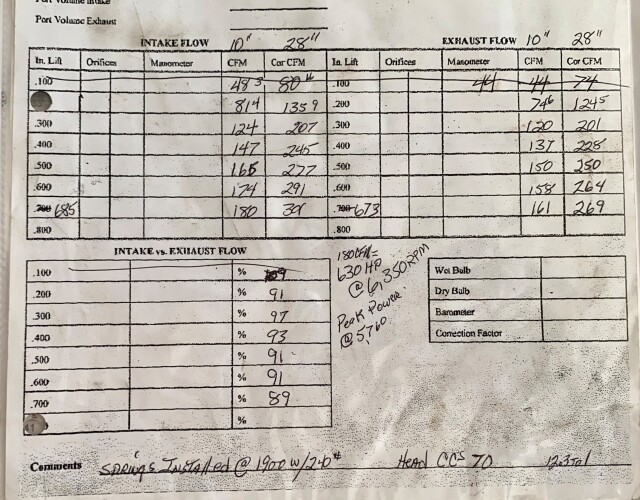 Port Volume Intake
Port Volume Exhaust
INTAKE FLOW 10" 28" EXHAUST FLOW 10" 28"
In. Lift Orifices Manometer CFM Cor CFM In. Lift Orifices Manometer CFM Cor CFM
.100 48³ 80⁴ .100 44 44 74
81⁴ 135⁹ .200 74⁶ 124⁵
.300 124 207 .300 120 201
.400 147 245 .400 137 228
.500 165 277 .500 150 250
.600 174 291 .600 158 264
.700 685 180 301 .700 673 161 269
.800 .800
INTAKE vs. EXHAUST FLOW
.100 % 89
.200 % 91
.300 % 97
.400 % 93
.500 % 91
.600 % 91
.700 % 89
41 %
180 CFM =
630 HP
@ 6,350 RPM
Peak Power
@ 5760
Wet Bulb
Dry Bulb
Barometer
Correction Factor
Comments SPRINGS INSTALLED @ 1900 W/240# HEAD CCS 70